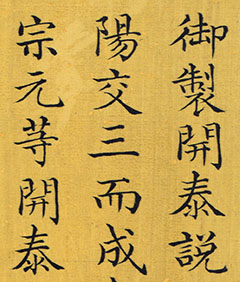 御製開泰說
陽交三而成
宗元䓁開泰